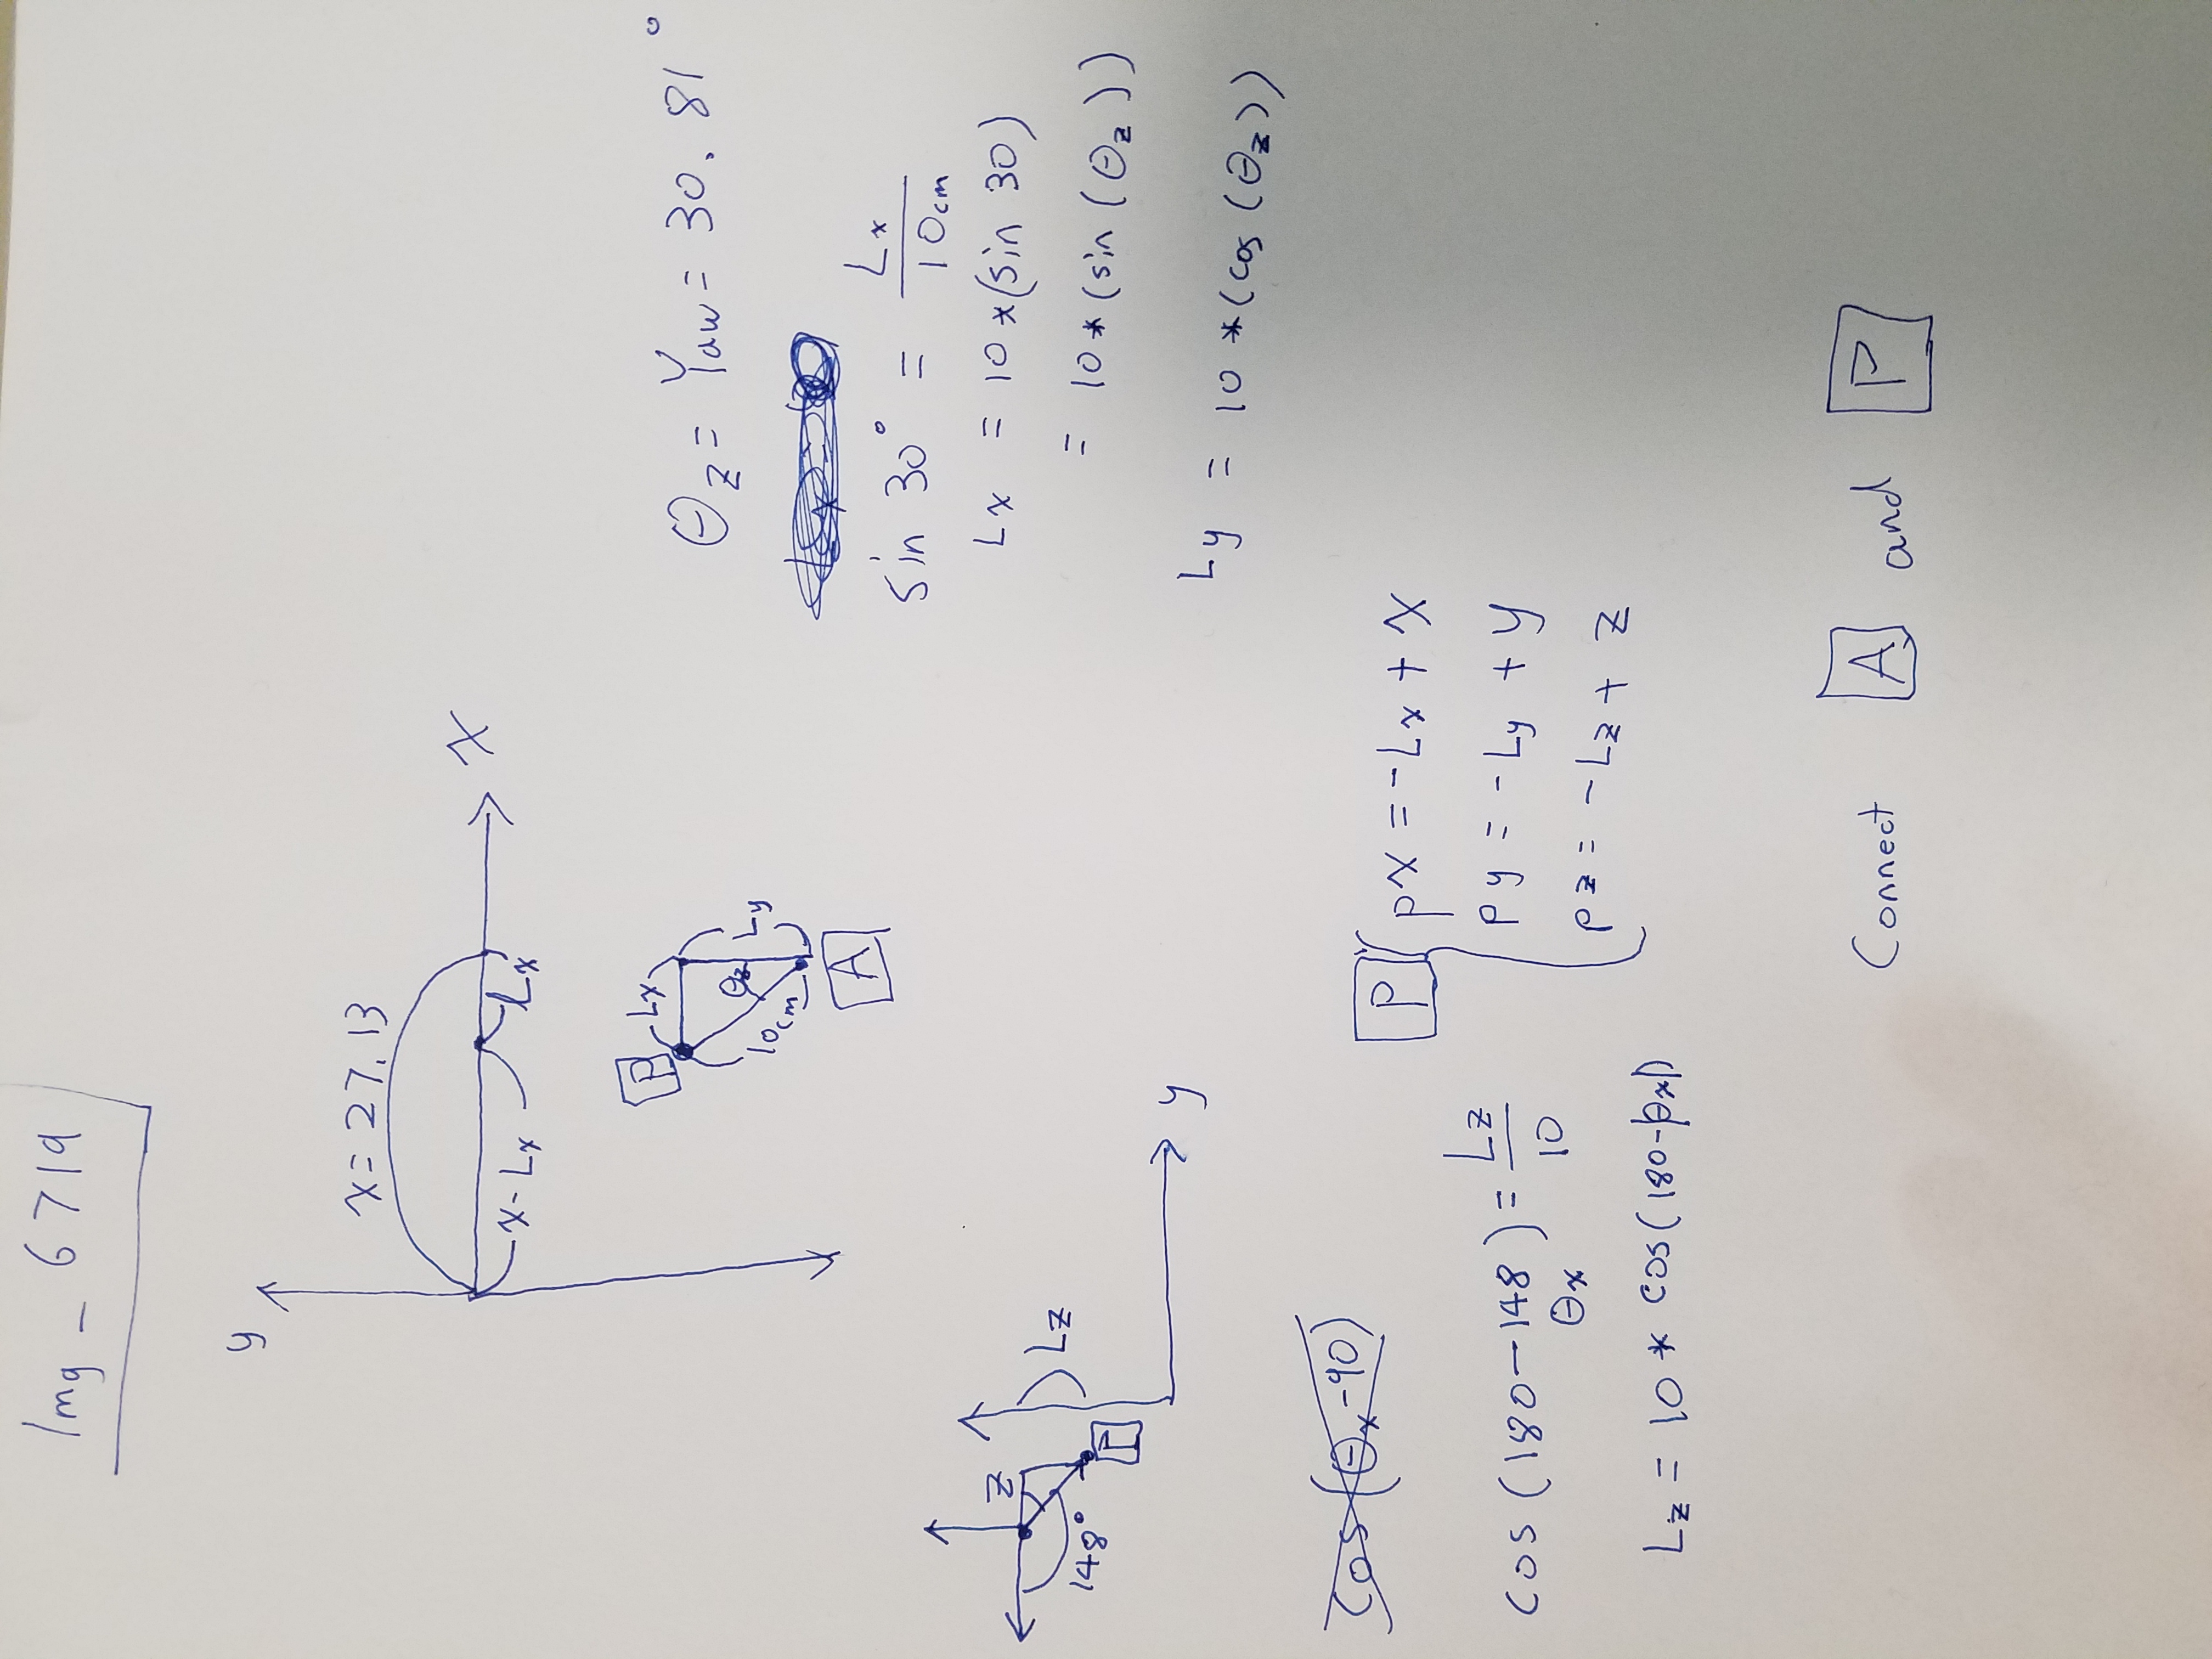 Img - 6719
y
x = 27.13
X
x - Lx
Lx
P
Lx
θz
Ly
10cm
A
θz = Yaw = 30.81°
sin 30° = Lx / 10cm
Lx = 10 * (sin 30)
= 10 * (sin (θz))
Ly = 10 * (cos (θz))
z
Lz
148°
P
y
cos (θx - 90)
cos (180 - 148) = Lz / 10
θx
Lz = 10 * cos (180 - |θx|)
P
px = -Lx + X
py = -Ly + y
pz = -Lz + z
Connect A and P